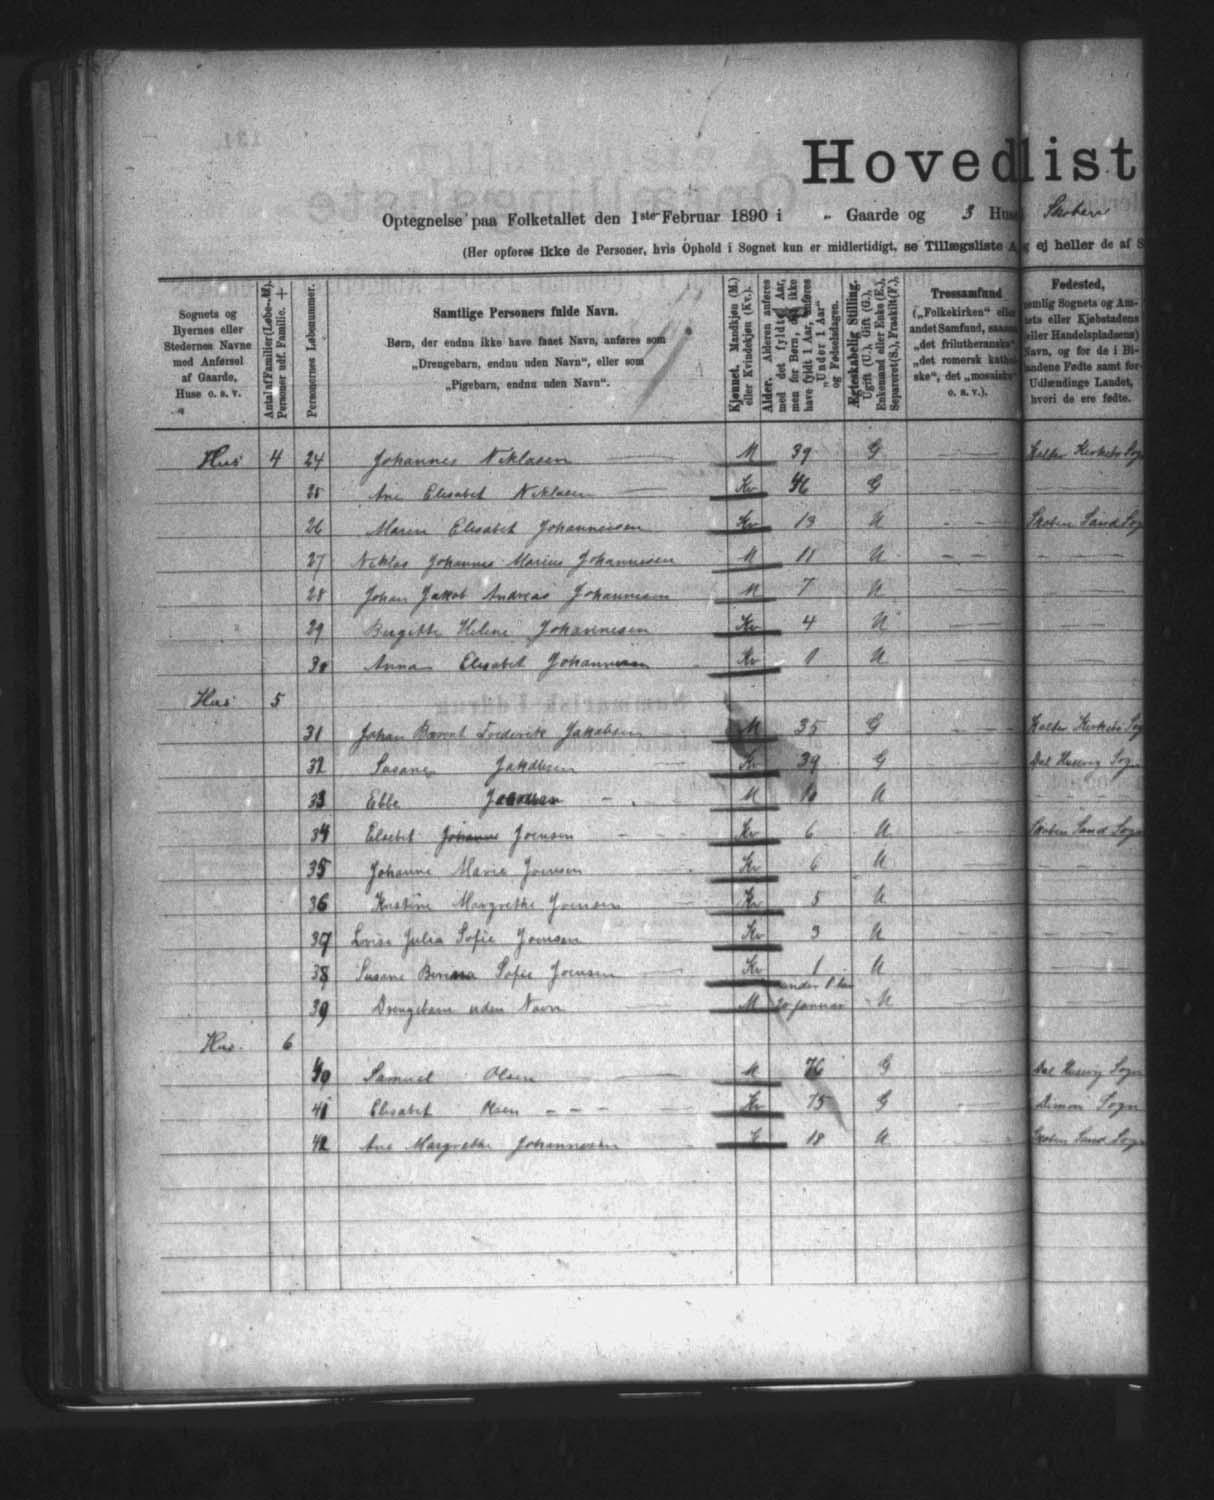 Hovedlist
Optegnelse paa Folketallet den 1ste Februar 1890 i „ Gaarde og 3 Huse
(Her opføres ikke de Personer, hvis Ophold i Sognet kun er midlertidigt, se Tillægsliste A og ej heller de af S
Sognets og Byernes eller Stedernes Navne med Anførsel af Gaarde, Huse o. s. v.
Antal af Familier (Løbe-№). Personer udf. Familie. +
Personernes Løbenummer.
Samtlige Personers fulde Navn.
Børn, der endnu ikke have faaet Navn, anføres som
„Drengebarn, endnu uden Navn“, eller som
„Pigebarn, endnu uden Navn“.
Kjønnet. Mandkjøn (M.) eller Kvindekjøn (Kv.).
Alder. Alderen anføres med det fyldte Aar, men for Børn, der ikke have fyldt 1 Aar, anføres „Under 1 Aar“ og Fødselsdagen.
Ægteskabelig Stilling. Ugift (U.), Gift (G.), Enkemand eller Enke (E.), Separeret (S.), Fraskilt (F.).
Trossamfund („Folkekirken“ eller andet Samfund, saasom „det frilutheranske“, „det romersk katholske“, det „mosaiske“ o. s. v.).
Fødested, nemlig Sognets og Amtets eller Kjøbstadens (eller Handelspladsens) Navn, og for de i Bilandene Fødte samt for Udlændinge Landet, hvori de ere fødte.
Hus 4 24 Johannes Niklasen M 39 G
25 Ane Elisabet Niklasen Kv 46 G
26 Maren Elisabet Johannesen Kv 13 U Sand Sogn
27 Niklas Johannes Marius Johannesen M 11 U
28 Johan Jakob Andreas Johannesen M 7 U
29 Birgitte Helene Johannesen Kv 4 U
30 Anna Elisabet Johannesen Kv 1 U
Hus 5
31 Johan Frederik Jakobsen M 35 G
32 Susanne Jakobsen Kv 39 G Dal Husevig Sogn
33 Ebbe M 10 U
34 Elsebet Johanne Joensen Kv 6 U Sand Sogn
35 Johanne Marie Joensen Kv 6 U
36 Kristine Margrethe Joensen Kv 5 U
37 Lovise Julia Sofie Joensen Kv 3 U
38 Susane Sofie Joensen Kv 1 U
39 Drengebarn uden Navn M under 1 Aar 20 Januar U
Hus 6
40 Samuel Olsen M 76 G Dal Husevig Sogn
41 Elisabet Olsen Kv 75 G Sogn
42 Ane Margrethe Johannesen K 18 U Sand Sogn